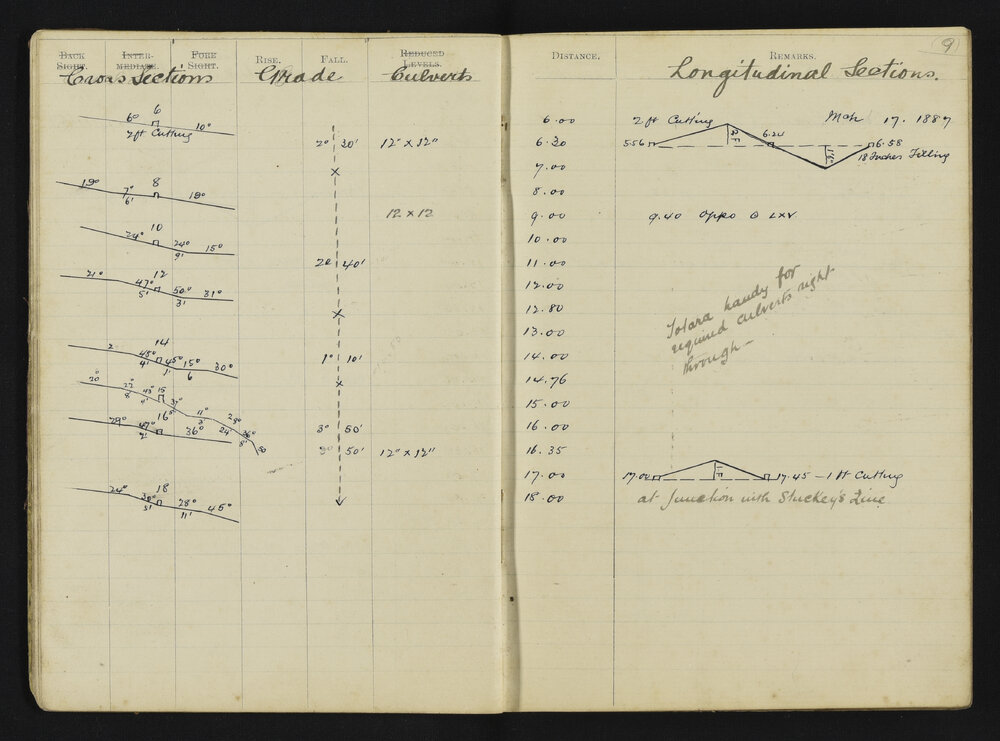 BACK SIGHT. INTER-MEDIATE. FORE SIGHT. RISE. FALL. REDUCED LEVELS.
Cross Sections Grade Culverts
6
6° 10°
2 ft Cutting
2° 30' 12" x 12"
x
8
19° 7° 18°
6'
12 x 12
10
24° 24° 15°
9'
2° 40'
12
21° 47° 50° 31°
5' 3'
x
14
2 45° 45° 15° 30°
4' 1' 6
1° 10'
x
20° 22° 43° 15 37° 11° 28° 36°
8 4' 5' 3' 24 8' 80
16
29° 47° 36°
2'
3° 50'
3° 50' 12" x 12"
18
24° 30° 28° 45°
3' 11'
(9)
DISTANCE. REMARKS.
Longitudinal Sections.
6.00 2 ft Cutting Mch 17. 1887
6.30 5.56 2 F 6.20 6.58
1'6" 18 Inches Filling
7.00
8.00
9.00 9.40 oppo ⊙ LXV
10.00
11.00
12.00
12.80
13.00
14.00
14.76
15.00
16.00
16.35
Totara handy for
required culverts right
through —
17.00 17.00 1 F 17.45 — 1 ft Cutting
18.00 at Junction with Stuckey's Line